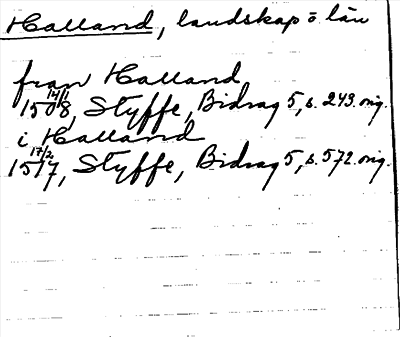 Halland, landskap o. län
från Halland
1508 14/1, Styffe, Bidrag 5, s. 243. orig.
i Halland
1517 17/2, Styffe, Bidrag 5, s. 572. orig.